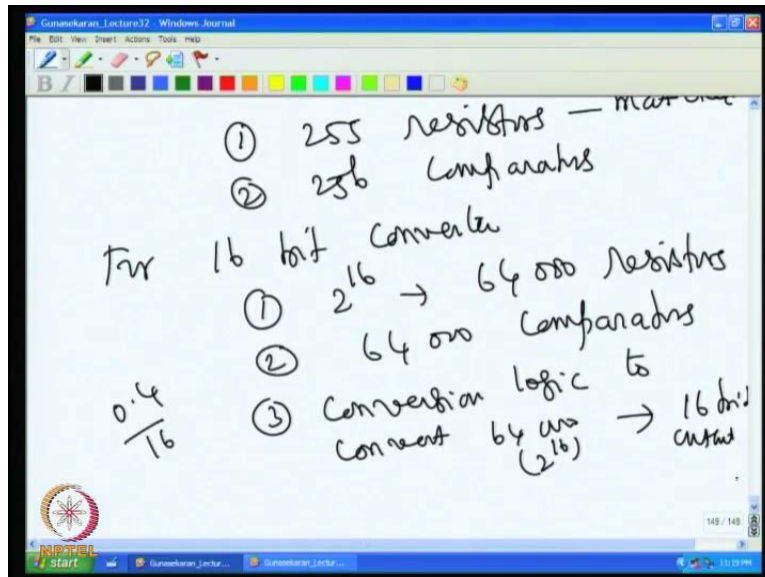 Gunasekaran_Lecture32 - Windows Journal
File Edit View Insert Actions Tools Help
B I
① 255 resistors —
② 256 Comparators
For 16 bit Converter
① 2^16 → 64 000 resistors
② 64 000 Comparators
0.4
16
③ Conversion logic to
Convert 64 000 → 16 bit
(2^16) output
149 / 149
NPTEL
start Gunasekaran_Lectur... Gunasekaran_Lectur... 11:19 PM